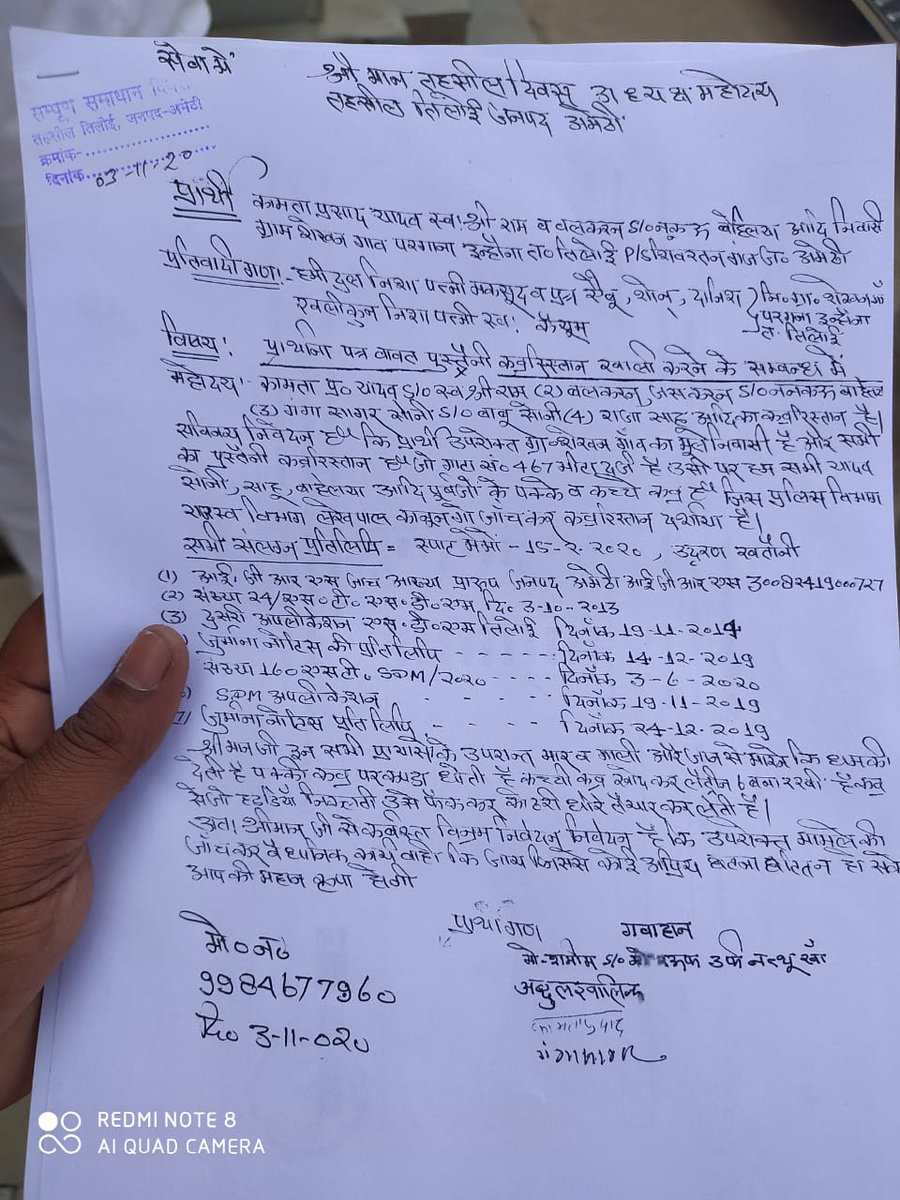 सेवा में
श्री मान तहसील दिवस अध्यक्ष महोदय
तहसील तिलोई जनपद अमेठी
सम्पूर्ण समाधान दि
तहसील तिलोई, जनपद-अमेठी
क्रमांक-
दिनांक 03-11-20
प्रार्थी कामता प्रसाद यादव स्व! श्री राम व बलकरन S/० ननकऊ बहेलिया आदि निवासी
ग्राम शेखन गांव परगना इन्हौना त० तिलोई P/S शिवरतन गंज जि० अमेठी
प्रतिवादी गण! निशा पत्नी मकसूद व पुत्र सैबू, शोनू, दानिश नि० ग्रा० शेखनगाँव
खलीकुन निशा पत्नी स्व! कैयूम परगना इन्हौना
त. तिलोई
विषय! प्रार्थना पत्र बावत पुस्तैनी कब्रिस्तान खाली करने के सम्बन्ध में
महोदय! कामता प्र० यादव S/० स्व श्री राम (2) बलकरन, जसकरन S/० ननकऊ बहेलिया
(3) गंगा सागर सोनी S/० बाबू सोनी (4) राजा साहू आदि का कब्रिस्तान है।
सविनय निवेदन है कि प्रार्थी उपरोक्त ग्रा० शेखन गाँव का मूल निवासी है और सभी
का पुस्तैनी कब्रिस्तान है जो गाटा सं० 467 मीटा दर्ज है उसी पर हम सभी यादव
सोनी, साहू, बहेलिया आदि पूर्वजों के पक्के व कच्चे कब्र है जिस पुलिस विभाग
राजस्व विभाग लेखपाल कानूनगो जाँच कर कब्रिस्तान दर्शाया है।
सभी संलग्न प्रतिलिपि = 15-2-2020, उद्धरण खतौनी
(1) आई. जी आर एस जांच आख्या प्रारूप जनपद अमेठी आई जी आर एस 30082419000727
(2) संख्या 24/एस०टी० एस०डी०एम दि० 3-10-2013
(3) दूसरी अपलीकेशन एस०डी०एम तिलोई दिनाँक 19-11-2014
जुर्माना नोटिस की प्रतिलिपि - - - - - - दिनाँक 14-12-2019
संख्या 160 एसटी० SDM/2020 - - - - दिनाँक 3-6-2020
SDM अपलीकेशन - - - - दिनाँक 19-11-2019
जुर्माना नोटिस प्रतिलिपि - - - - दिनाँक 24-12-2019
श्रीमान जी इन सभी प्रयासों के उपरान्त मार व गाली और जान से मारने कि धमकी
देती है पक्की कब्र पर कपड़ा धोती है कच्ची कब्र खोद कर लैट्रीन बना रखी है कब्र
से जो हड्डियाँ निकलती उसे फेंक कर तैयार कर लेती हैं।
अतः श्रीमान जी से विनम्र निवेदन निवेदन है कि उपरोक्त मामले की
जाँच कर वैधानिक कार्यवाही कि जाय जिससे कोई अप्रिय घटना घटित न हो सके
आप की महान कृपा होगी
प्रार्थीगण गवाहान
मो० नं० 9984677960
दि० 3-11-020
मो-शमीम S/० उर्फ नत्थू खाँ
अब्दुल
कामताप्रसाद
REDMI NOTE 8
AI QUAD CAMERA